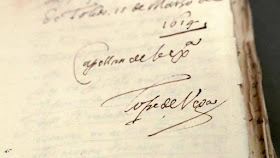 En Toledo, 10 de Março de
1614
Capellan de V. exª
Lope de Vega